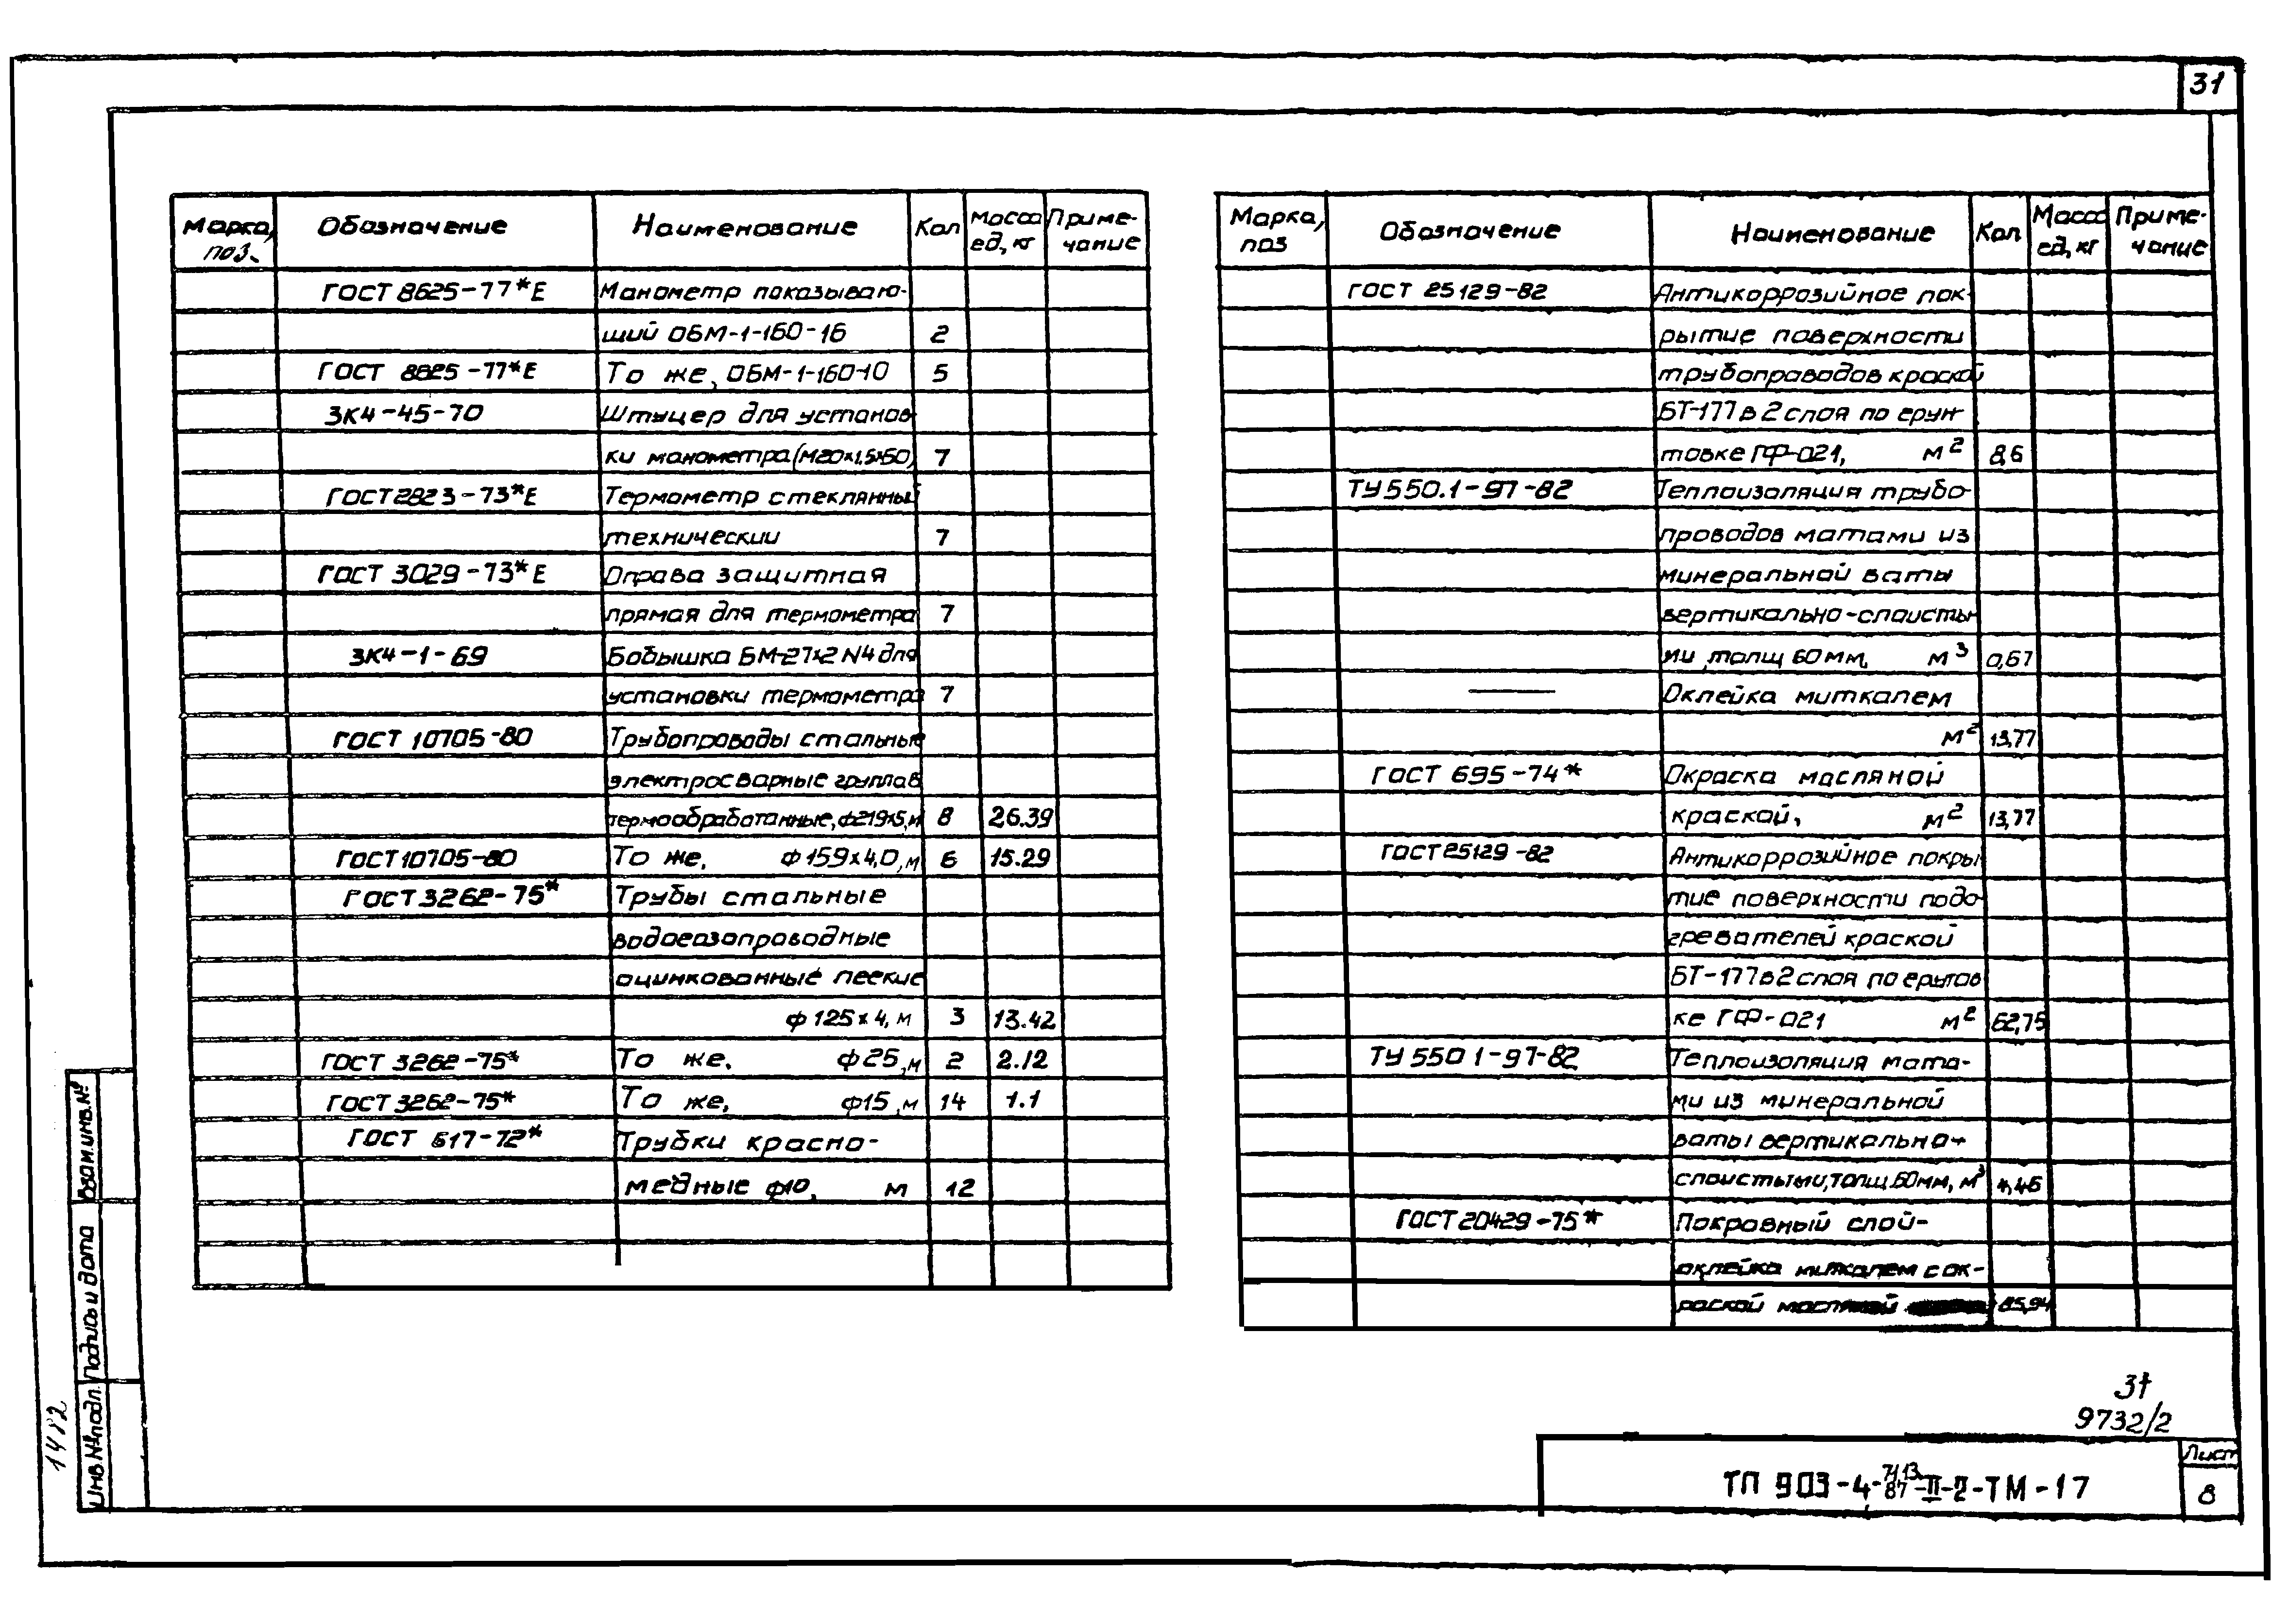 31
Марка, поз. Обозначение Наименование Кол Масса ед, кг Приме- чание
ГОСТ 8625-77*Е Манометр показываю-
щий ОБМ-1-160-16 2
ГОСТ 8625-77*Е То же, ОБМ-1-160-10 5
ЗК4-45-70 Штуцер для установ
ки манометра (М20х1,5х50) 7
ГОСТ 2823-73*Е Термометр стеклянный
технический 7
ГОСТ 3029-73*Е Оправа защитная
прямая для термометра 7
ЗК4-1-69 Бобышка БМ-27х2 N4 для
установки термометра 7
ГОСТ 10705-80 Трубопроводы стальные
электросварные группа В
термообработанные, ф219х5, м 8 26.39
ГОСТ 10705-80 То же, ф159х4,0, м 6 15.29
ГОСТ 3262-75* Трубы стальные
водогазопроводные
оцинкованные легкие
ф125х4, м 3 13.42
ГОСТ 3262-75* То же, ф25, м 2 2.12
ГОСТ 3262-75* То же, ф15, м 14 1.1
ГОСТ 617-72* Трубки красно-
медные ф10, м 12
Марка, поз Обозначение Наименование Кол Масса ед, кг Приме- чание
ГОСТ 25129-82 Антикоррозийное пок-
рытие поверхности
трубопроводов краской
БТ-177 в 2 слоя по грун-
товке ГФ-021, м² 8,6
ТУ 550.1-97-82 Теплоизоляция трубо-
проводов матами из
минеральной ваты
вертикально-слоисты-
ми, толщ 60 мм, м³ 0,67
— Оклейка миткалем
м² 13,77
ГОСТ 695-74* Окраска масляной
краской, м² 13,77
ГОСТ 25129-82 Антикоррозийное покры
тие поверхности подо-
гревателей краской
БТ-177 в 2 слоя по грунтов
ке ГФ-021 м² 62,75
ТУ 550 1-97-82 Теплоизоляция мата-
ми из минеральной
ваты вертикально-
слоистыми, толщ. 60 мм, м³ 4,46
ГОСТ 20429-75* Покровный слой-
оклейка миткалем с ок-
раской масляной 85,94
31
9732/2
ТП 903-4-74.13.87-II-2-ТМ-17
Лист
8
Взам.инв.№
Подпись и дата
Инв.№подл.
1482